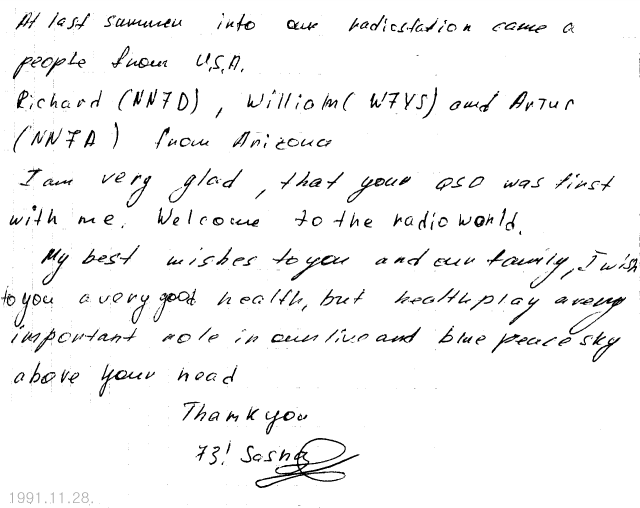 At last summer into our radiostation came a
people from U.S.A.
Richard (NN7D), William (W7YS) and Artur
(NN7A) from Arizona
I am very glad, that your QSO was first
with me. Welcome to the radio world.
My best wishes to you and our family, I wish
to you a very good health, but health play a very
important role in our live and blue peace sky
above your head
Thank you
73! Sasha
1991.11.28.